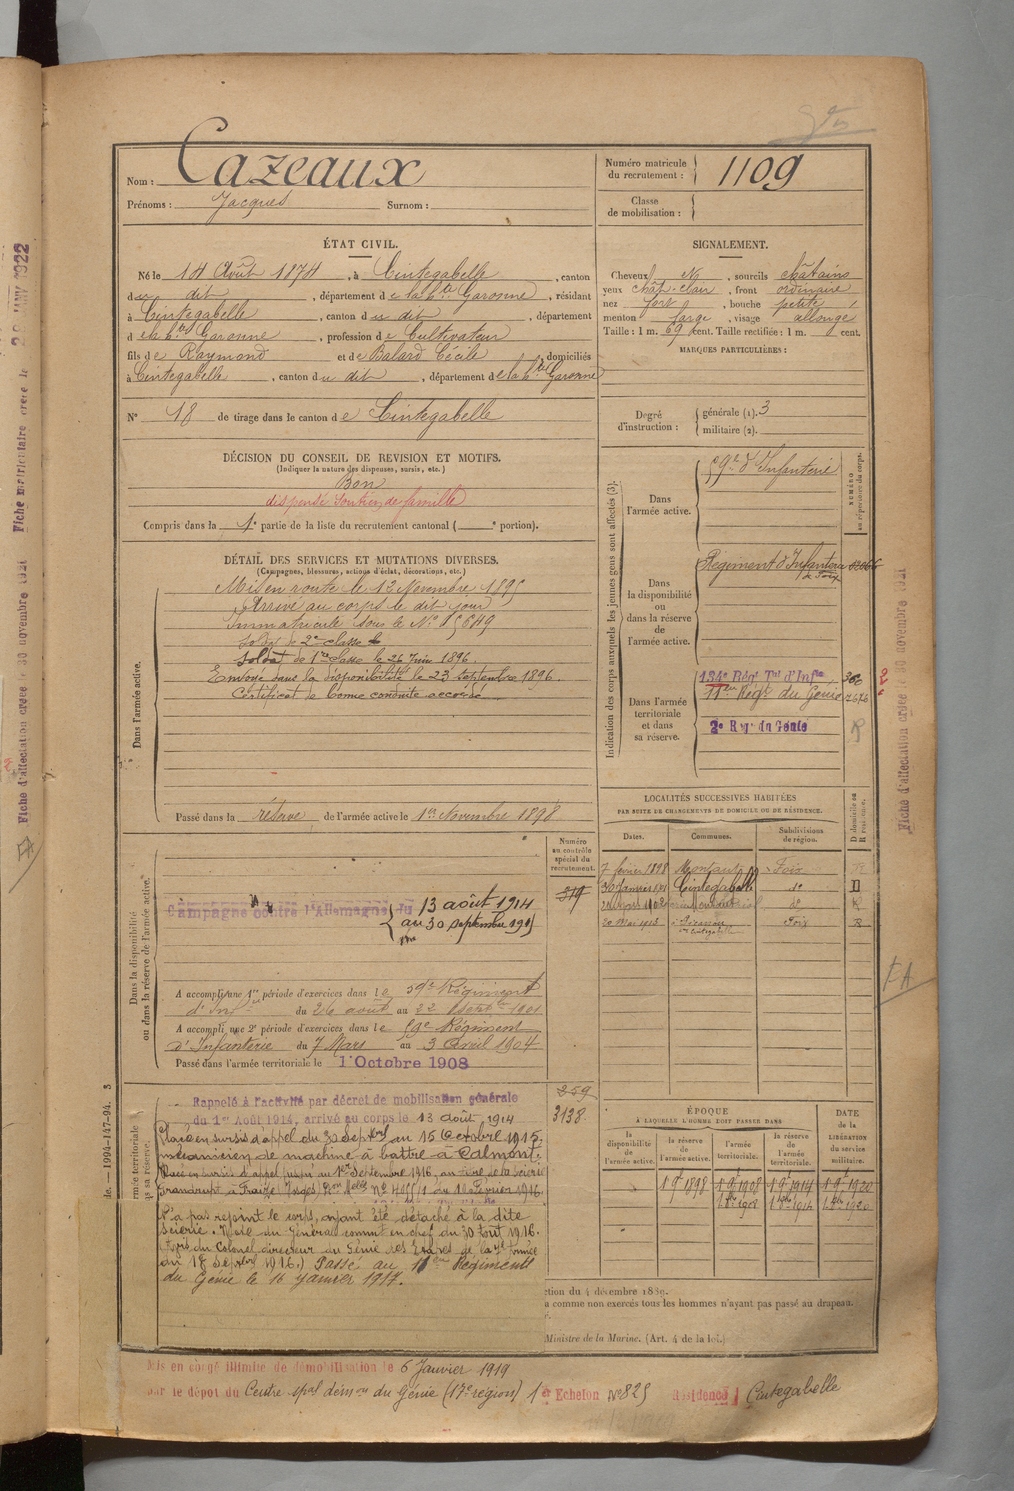 Nom : Cazeaux
Prénoms : Jacques Surnom :
Numéro matricule
du recrutement : 1109
Classe
de mobilisation :
ÉTAT CIVIL.
Né le 14 Août 1874, à Cintegabelle, canton
du dit, département de la hte Garonne, résidant
à Cintegabelle, canton du dit, département
de la hte Garonne, profession de Cultivateur
fils de Raymond et de Balard Cécile, domiciliés
à Cintegabelle, canton du dit, département de la hte Garonne
N° 18 de tirage dans le canton de Cintegabelle
SIGNALEMENT.
Cheveux, sourcils châtains
yeux chât. clair, front ordinaire
nez fort, bouche petite
menton large, visage allongé
Taille : 1 m. 69 cent. Taille rectifiée : 1 m. cent.
MARQUES PARTICULIÈRES :
Degré
d'instruction : générale (1). 3
militaire (2).
DÉCISION DU CONSEIL DE REVISION ET MOTIFS.
(Indiquer la nature des dispenses, sursis, etc.)
Bon
dispensé soutien de famille
Compris dans la 1e partie de la liste du recrutement cantonal ( e portion).
DÉTAIL DES SERVICES ET MUTATIONS DIVERSES.
(Campagnes, blessures, actions d'éclat, décorations, etc.)
Dans l'armée active.
Mis en route le 12 Novembre 1895
Arrivé au corps le dit jour
Immatriculé sous le N° 15649
Soldat de 2e classe
Soldat de 1re classe le 26 Juin 1896.
Envoyé dans la disponibilité le 23 septembre 1896.
Certificat de bonne conduite accordé
Passé dans la réserve de l'armée active le 1er Novembre 1898
Indication des corps auxquels les jeunes gens sont affectés (3).
NUMÉRO
au répertoire du corps.
Dans
l'armée active.
59e d'Infanterie
Dans
la disponibilité
ou
dans la réserve
de
l'armée active.
Régiment d'Infanterie
de Foix
Dans l'armée
territoriale
et dans
sa réserve.
134e Régt Tal d'Infie
11er Régt du Génie
2e Reg. du Génie
LOCALITÉS SUCCESSIVES HABITÉES
PAR SUITE DE CHANGEMENTS DE DOMICILE OU DE RÉSIDENCE.
Dates. Communes. Subdivisions
de région.
D domicile ou
R résidence.
7 février 1898 Montaut Foix R
30 Janvier 1901 Cintegabelle do D
20 Mai 1913 Foix R
Dans la disponibilité
ou dans la réserve de l'armée active.
Numéro
au contrôle
spécial du
recrutement.
319
Campagne contre l'Allemagne du 13 août 1914
au 30 septembre 1915
A accompli une 1re période d'exercices dans le 59e Régiment
d'Infie du 26 août au 22 Septbre 1901
A accompli une 2e période d'exercices dans le 59e Régiment
d'Infanterie du 7 Mars au 3 Avril 1904
Passé dans l'armée territoriale le 1 Octobre 1908
259
3138.
Rappelé à l'activité par décret de mobilisation générale
du 1er Août 1914, arrivé au corps le 13 août 1914
Placé en sursis d'appel du 30 Septbre au 15 Octobre 1915,
mécanicien de machine à battre à Calmont.
Placé en sursis d'appel jusqu'au 1er Septembre 1916, au titre de la scierie
Grandrupt, à Fraize (Vosges)
N'a pas rejoint le corps, ayant été détaché à la dite
scierie.
du Général commt en chef du 30 Août 1916.
du Colonel directeur du Génie des Etapes de la 7e Armée
du 18 Septbre 1916.) Passé au 11eme Régiment
du Génie le 16 janvier 1917.
ÉPOQUE
À LAQUELLE L'HOMME DOIT PASSER DANS
la
disponibilité
de
l'armée active.
la réserve
de
l'armée active.
l'armée
territoriale.
la réserve
de
l'armée
territoriale.
DATE
de la
LIBÉRATION
du service
militaire.
1 9e 1898 1 9e 1908 1 9e 1914 1 9e 1920
1 8bre 1908 1 8bre 1914 1 8bre 1920
ction du 4 décembre 1889.
a comme non exercés tous les hommes n'ayant pas passé au drapeau.
Ministre de la Marine. (Art. 4 de la loi.)
Mis en congé illimité de démobilisation le 6 Janvier 1919
par le dépôt du Centre spal démon du Génie (17e région) 1er Echelon N°825 Résidence Cintegabelle
Fiche matriculaire créée le
Fiche d'affectation créée le 30 novembre 1921
Fiche d'affectation créée le 30 novembre 1921